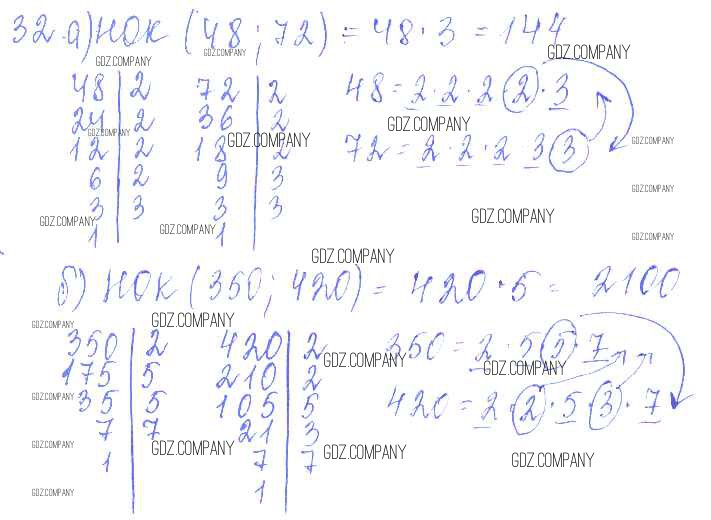 32 а) НОК (48; 72) = 48 · 3 = 144
GDZ.COMPANY GDZ.COMPANY GDZ.COMPANY
48 | 2 72 | 2 48 = 2 · 2 · 2 · 2 · 3
24 | 2 36 | 2
GDZ.COMPANY GDZ.COMPANY GDZ.COMPANY GDZ.COMPANY
12 | 2 18 | 2 72 = 2 · 2 · 2 · 3 · 3
6 | 2 9 | 3
GDZ.COMPANY
3 | 3 3 | 3
GDZ.COMPANY GDZ.COMPANY GDZ.COMPANY
1 | 1 |
GDZ.COMPANY
GDZ.COMPANY
б) НОК (350; 420) = 420 · 5 = 2100
GDZ.COMPANY GDZ.COMPANY
350 | 2 420 | 2 350 = 2 · 5 · 5 · 7
GDZ.COMPANY GDZ.COMPANY
175 | 5 210 | 2
GDZ.COMPANY
35 | 5 105 | 5 420 = 2 · 2 · 5 · 3 · 7
7 | 7 21 | 3
GDZ.COMPANY GDZ.COMPANY GDZ.COMPANY
1 | 7 | 7
GDZ.COMPANY
1 |
GDZ.COMPANY